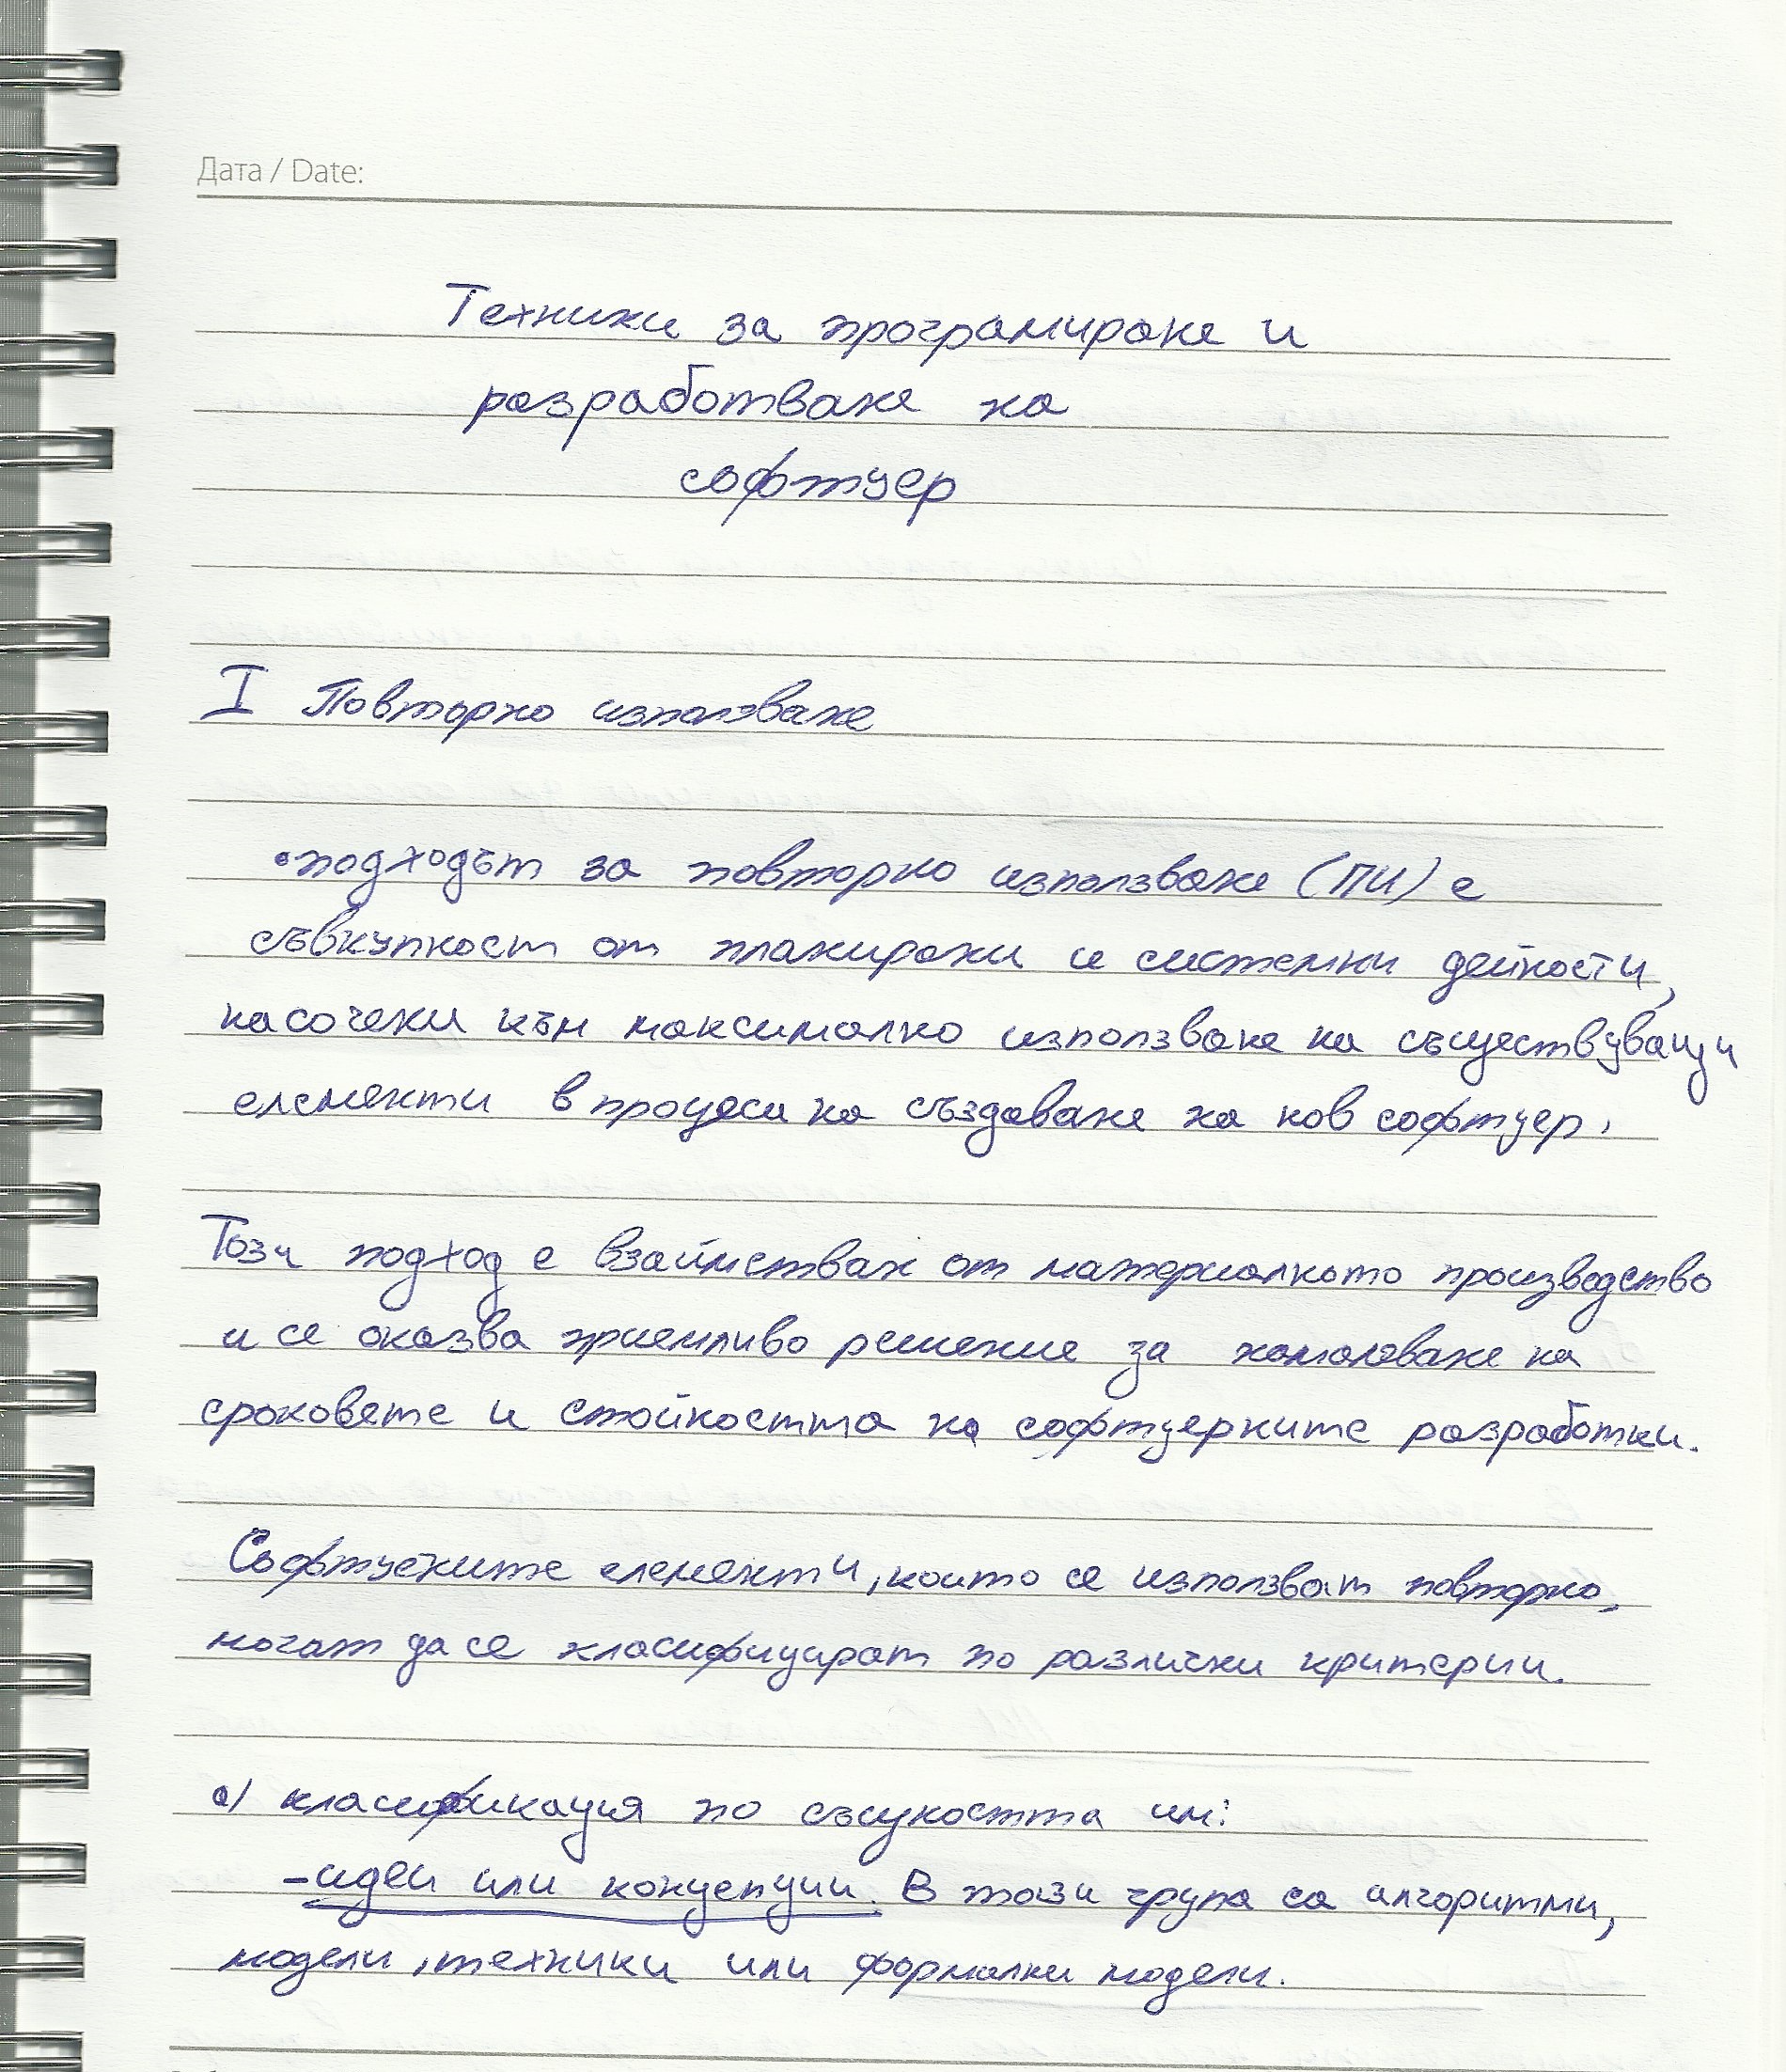 Дата / Date:
Техники за програмиране и
разработване на
софтуер
I Повторно използване
•подходът за повторно използване (ПИ) е
съвкупност от планирани и системни дейности,
насочени към максимално използване на съществуващи
елементи в процеса на създаване на нов софтуер.
Този подход е взаимстван от материалното производство
и се оказва приемливо решение за намаляване на
сроковете и стойността на софтуерните разработки.
Софтуените елементи, които се използват повторно,
могат да се класифицират по различни критерии.
а) класификация по същността им:
-идеи или концепции. В тази група са алгоритми,
модели, техники или формални модели.